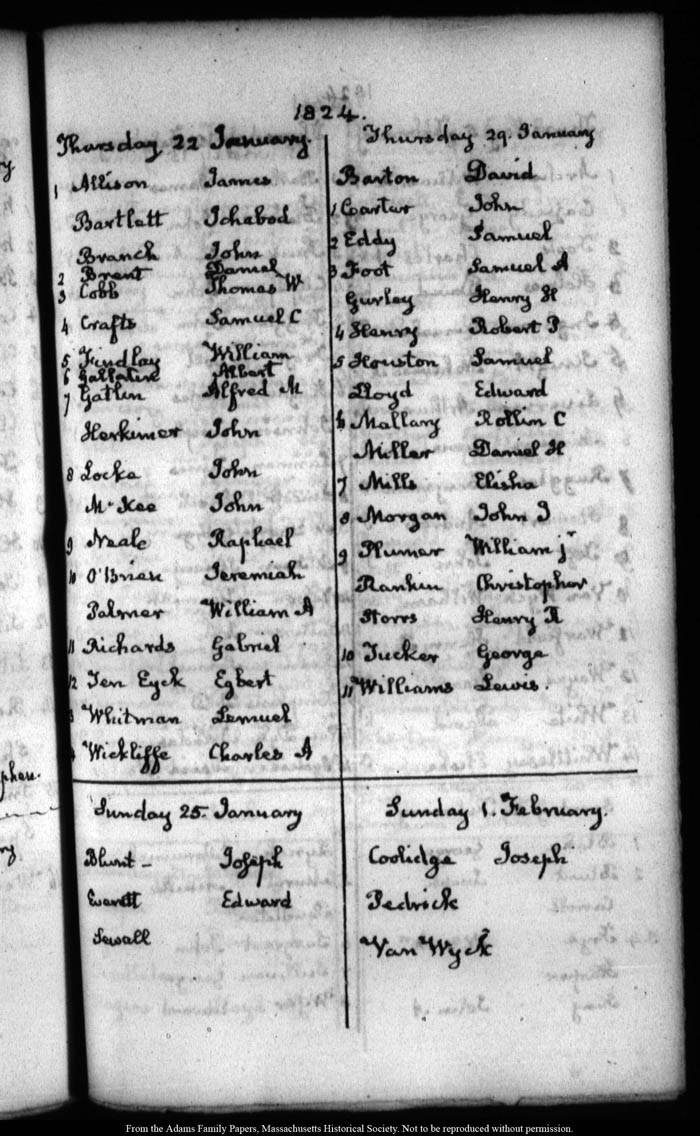 1824.
Thursday 22 January.
1 Allison James
Bartlett Ichabod
Branch John
2 Brent Daniel
3 Cobb Thomas W
4 Crafts Samuel C
5 Findlay William
6 Gallatin Albert
7 Gatlin Alfred M
Herkimer John
8 Locke John
McKee John
9 Neale Raphael
10 O'Brien Jeremiah
Palmer William A
11 Richards Gabriel
12 Ten Eyck Egbert
3 Whitman Lemuel
Wickliffe Charles A
Thursday 29. January
Barton David
1 Carter John
2 Eddy Samuel
3 Foot Samuel A
Gurley Henry H
4 Henry Robert P
5 Houston Samuel
Lloyd Edward
6 Mallary Rollin C
Miller Daniel H
7 Mills Elisha
8 Morgan John J
9 Plumer William jr
Rankin Christopher
Storrs Henry R
10 Tucker George
11 Williams Lewis.
Sunday 25. January
Blunt – Joseph
Everett Edward
Sewall
Sunday 1. February.
Coolidge Joseph
Pedrick
Van Wyck
From the Adams Family Papers, Massachusetts Historical Society. Not to be reproduced without permission.